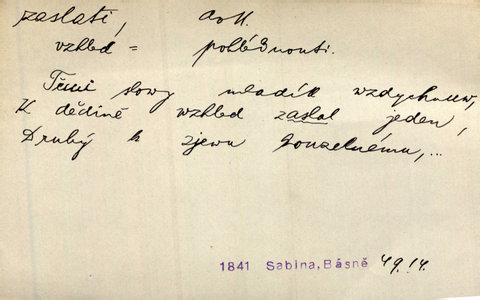 zaslati, dok.
vzhled = pohlédnouti.
Těmi slowy mladík wzdychnuw,
K dědině wzhled zaslal jeden,
Druhý k zjewu kouzelnému,...
1841 Sabina, Básně 49.14.